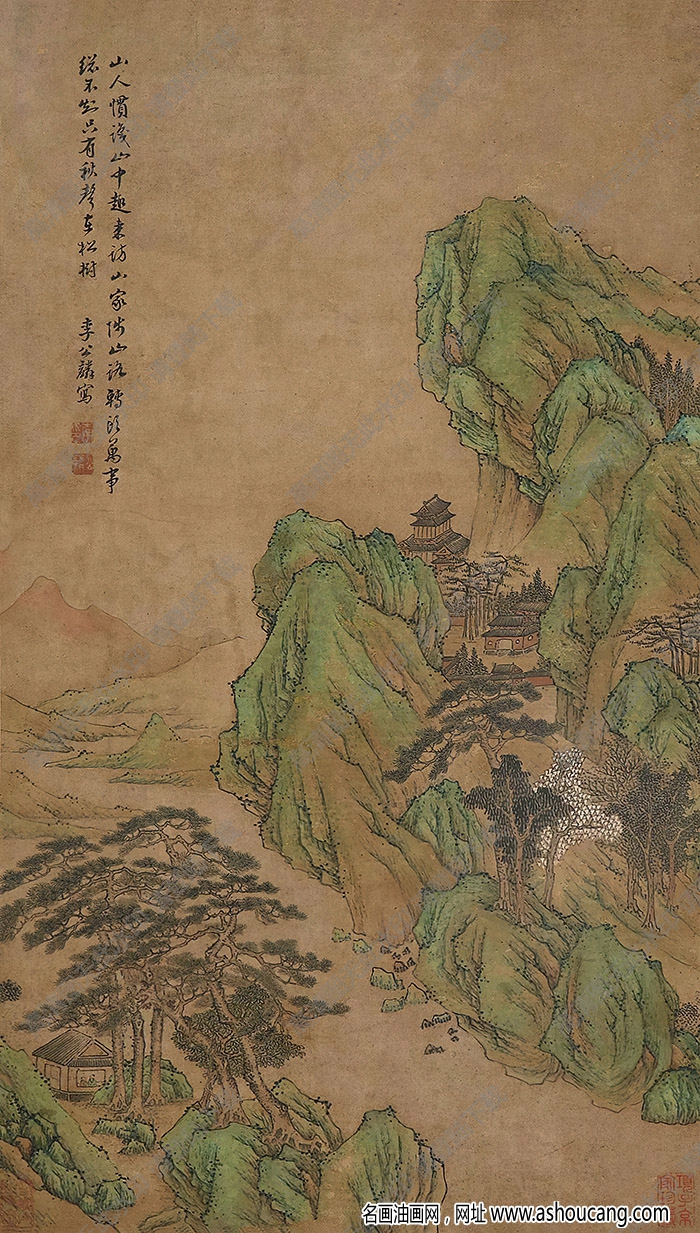 山人慣識山中趣来訪山家陟山路轉頭萬事
總不知只有秋聲在松樹
李公麟寫
名画油画网，网址 www.ashoucang.com